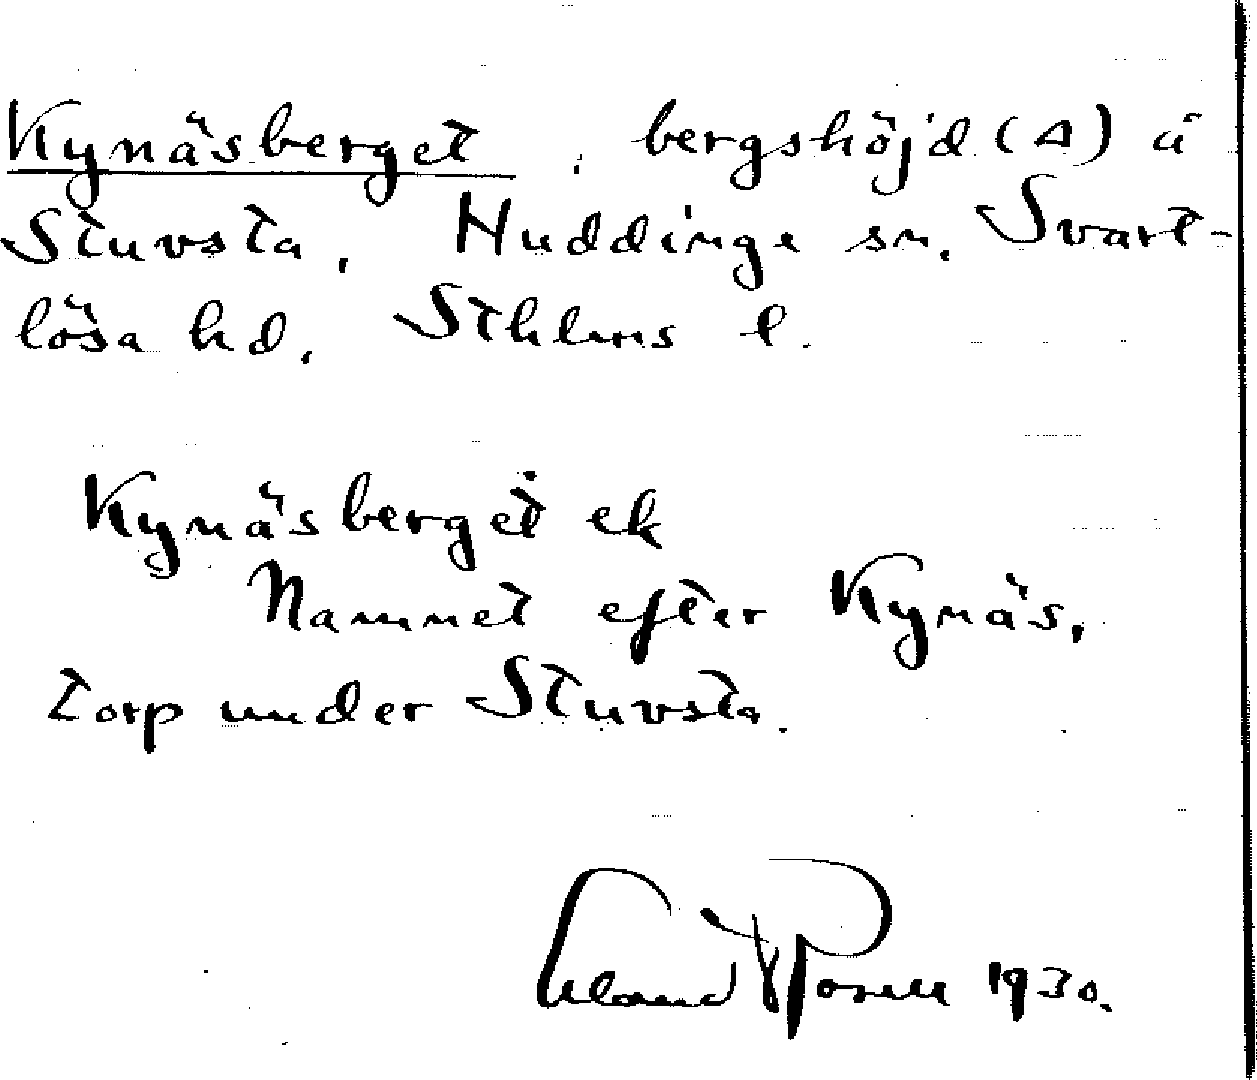 Kynäsberget, bergshöjd (△) å
Stuvsta, Huddinge sn. Svart-
lösa hd, Sthlms l.
Kynäsberget ek
Namnet efter Kynäs,
torp under Stuvsta.
Rosell 1930.